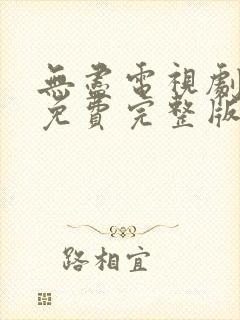 無盡電視劇
免費完整版
路相宜